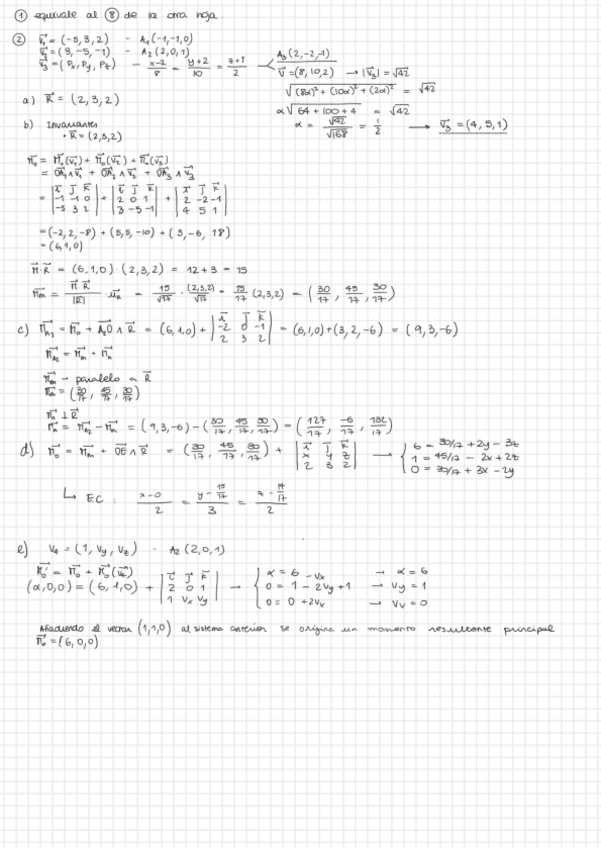 ① equivale al ⑧ de la otra hoja
② v₁ = (-5, 3, 2) - A₁(-1,-1,0)
v₂ = (3, -5, -1) - A₂(2,0,1)
v₃ = (Px, Py, Pz) - x-2/8 = y+2/10 = z+1/2
A₃(2,-2,-1)
V = (8, 10, 2) → |V₃| = √42
√((8α)² + (10α)² + (2α)²) = √42
α√(64 + 100 + 4) = √42
α = √42/√168 = 1/2 → V₃ = (4, 5, 1)
a) R = (2, 3, 2)
b) Invariantes
• R = (2,3,2)
M₀ = M₀(v₁) + M₀(v₂) + M₀(v₃)
= OA₁ ∧ v₁ + OA₂ ∧ v₂ + OA₃ ∧ v₃
= |i j k; -1 -1 0; -5 3 2| + |i j k; 2 0 1; 3 -5 -1| + |i j k; 2 -2 -1; 4 5 1|
= (-2, 2, -8) + (5, 5, -10) + (3, -6, 18)
= (6, 1, 0)
M · R = (6, 1, 0) · (2, 3, 2) = 12 + 3 = 15
Mm = M·R/|R| · uR = 15/√17 · (2,3,2)/√17 = 15/17 (2,3,2) = (30/17, 45/17, 30/17)
c) MA₂ = M₀ + A₂O ∧ R = (6,1,0) + |i j k; -2 0 -1; 2 3 2| = (6,1,0) + (3,2,-6) = (9,3,-6)
MA₂ = Mm + Mn
Mm → paralelo a R
Mm = (30/17, 45/17, 30/17)
Mn ⊥ R
Mn = MA₂ - Mm = (9, 3, -6) - (30/17, 45/17, 30/17) = (127/17, -6/17, 132/17)
d) M₀ = Mm + OE ∧ R = (30/17, 45/17, 30/17) + |i j k; x y z; 2 3 2| → { 6 = 30/17 + 2y - 3z
1 = 45/17 - 2x + 2z
0 = 30/17 + 3x - 2y
↳ E.C : x-0/2 = y - 15/17/3 = z - /2
e) V₄ = (1, Vy, Vz) - A₂(2,0,1)
M₀' = M₀ + M₀(V₄)
(α,0,0) = (6,1,0) + |i j k; 2 0 1; 1 Vx Vy| → { α = 6 - Vx → α = 6
0 = 1 - 2Vy + 1 → Vy = 1
0 = 0 + 2Vx → Vx = 0
Añadiendo el vector (1,1,0) al sistema anterior se origina un momento resultante principal
M₀' = (6, 0, 0)